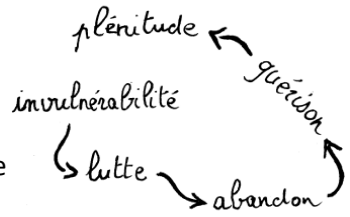 plénitude
guérison
invulnérabilité
e
lutte
abandon